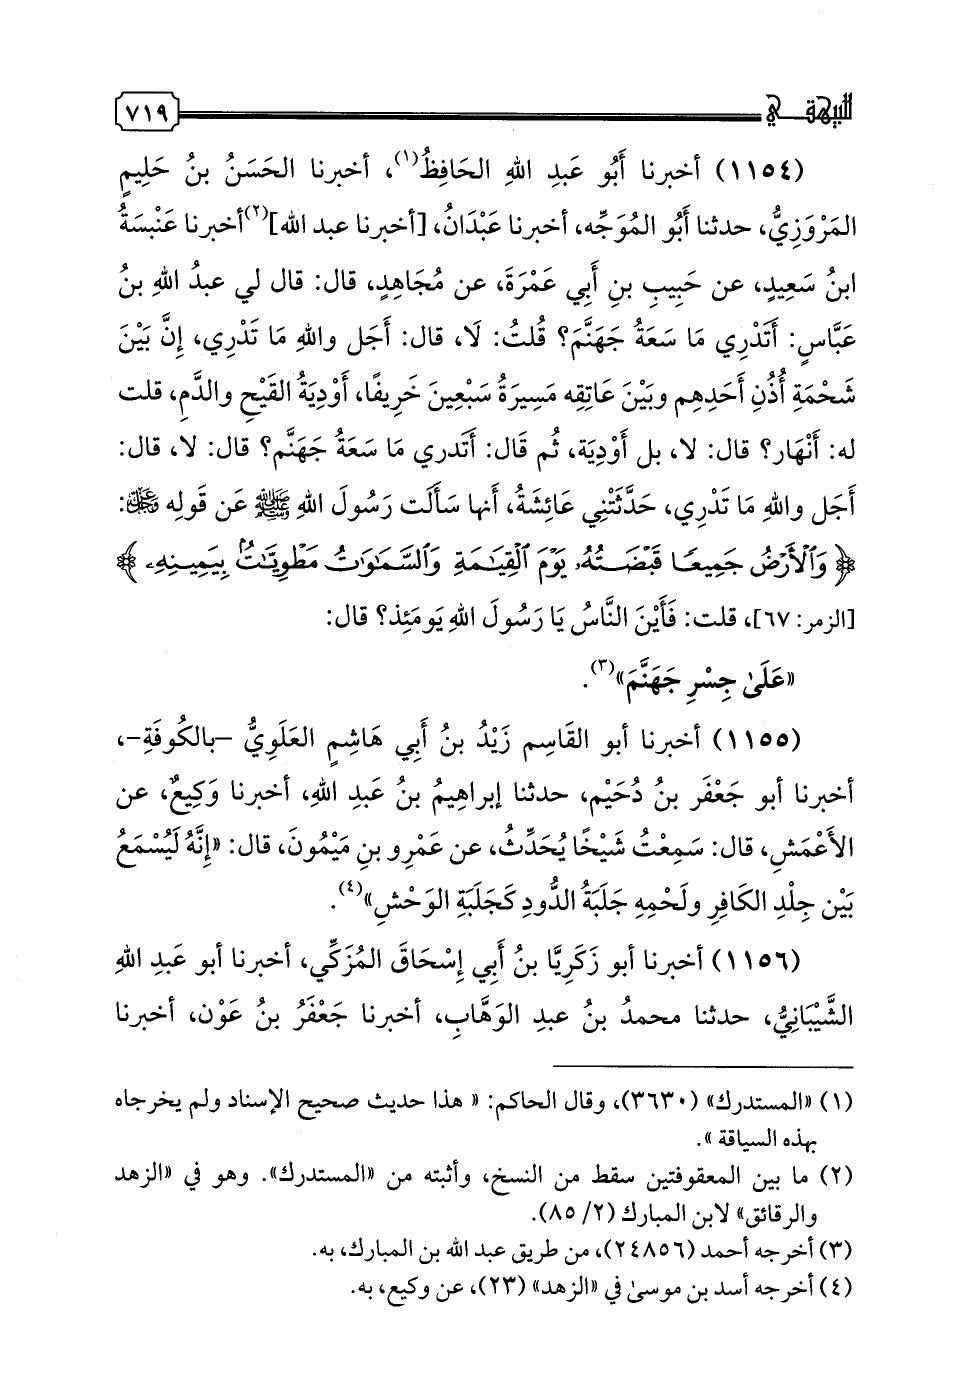 للبيهقي ٧١٩
(١١٥٤) أخبرنا أَبُو عَبدِ اللهِ الحَافِظُ(١)، أخبرنا الحَسَنُ بنُ حَلِيمٍ
المَرْوَزِيُّ، حدثنا أَبُو المُوَجِّه، أخبرنا عَبْدَانُ، [أخبرنا عبد الله](٢)أخبرنا عَنْبَسَةُ
ابنُ سَعِيدٍ، عن حَبِيبِ بنِ أَبِي عَمْرَةَ، عن مُجَاهِدٍ، قال: قال لي عبدُ اللهِ بنُ
عَبَّاسٍ: أَتَدْرِي مَا سَعَةُ جَهَنَّمَ؟ قُلتُ: لَا، قال: أَجَل واللهِ مَا تَدْرِي، إِنَّ بَيْنَ
شَحْمَةِ أُذُنِ أَحَدِهِم وبَيْنَ عَاتِقِه مَسِيرَةُ سَبْعِينَ خَرِيفًا، أَوْدِيَةُ القَيْحِ والدَّمِ، قلت
له: أَنْهَار؟ قال: لا، بل أَوْدِيَة، ثُم قَال: أَتَدري مَا سَعَةُ جَهَنَّم؟ قال: لا، قال:
أَجَل واللهِ مَا تَدْرِي، حَدَّثَتْنِي عَائِشَةُ، أنها سَأَلَت رَسُولَ اللهِ ﷺ عَن قَولِه عز وجل:
﴿وَٱلْأَرْضُ جَمِيعًا قَبْضَتُهُۥ يَوْمَ ٱلْقِيَـٰمَةِ وَٱلسَّمَـٰوَٰتُ مَطْوِيَّـٰتٌۢ بِيَمِينِهِۦ﴾
[الزمر: ٦٧]، قلت: فَأَيْنَ النَّاسُ يَا رَسُولَ اللهِ يَومَئِذ؟ قال:
«عَلَىٰ جِسْرِ جَهَنَّمَ»(٣).
(١١٥٥) أخبرنا أبو القَاسِم زَيْدُ بنُ أَبِي هَاشِمٍ العَلَوِيُّ –بالكُوفَةِ–،
أخبرنا أبو جَعْفَر بنُ دُحَيْم، حدثنا إبراهِيمُ بنُ عَبدِ اللهِ، أخبرنا وَكِيعٌ، عن
الأَعْمَشِ، قال: سَمِعْتُ شَيْخًا يُحَدِّثُ، عن عَمْرِو بنِ مَيْمُونَ، قال: «إِنَّهُ لَيُسْمَعُ
بَيْن جِلْدِ الكَافِرِ ولَحْمِهِ جَلَبَةُ الدُّودِ كَجَلَبَةِ الوَحْشِ»(٤).
(١١٥٦) أخبرنا أبو زَكَرِيَّا بنُ أَبِي إِسْحَاقَ المُزَكِّي، أخبرنا أبو عَبدِ اللهِ
الشَّيْبَانِيُّ، حدثنا محمدُ بنُ عبدِ الوَهَّابِ، أخبرنا جَعْفَرُ بنُ عَوْن، أخبرنا
(١) «المستدرك» (٣٦٣٠)، وقال الحاكم: « هذا حديث صحيح الإسناد ولم يخرجاه
بهذه السياقة ».
(٢) ما بين المعقوفتين سقط من النسخ، وأثبته من «المستدرك». وهو في «الزهد
والرقائق» لابن المبارك (٢/ ٨٥).
(٣) أخرجه أحمد (٢٤٨٥٦)، من طريق عبد الله بن المبارك، به.
(٤) أخرجه أسد بن موسىٰ في «الزهد» (٢٣)، عن وكيع، به.